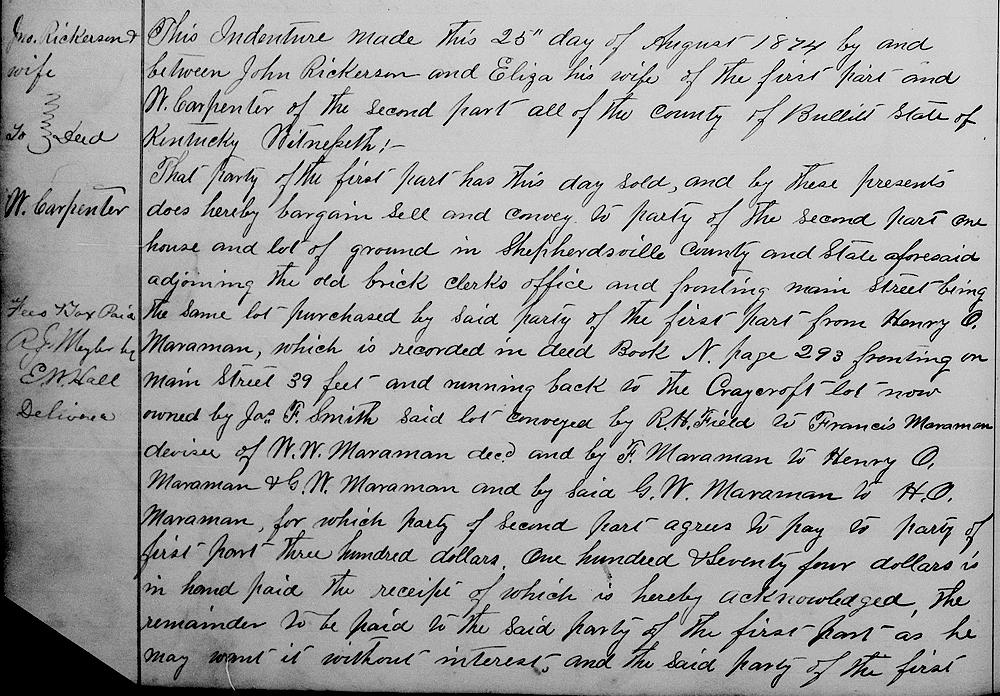 Jno. Rickerson &
wife
To Deed
W. Carpenter
Fees & Tax Paid
by
E.W. Hall
Delivered
This Indenture made this 25" day of August 1874 by and
between John Rickerson and Eliza his wife of the first part and
W. Carpenter of the second part all of the county of Bullitt State of
Kentucky Witnesseth:-
That party of the first part has this day sold, and by these presents
does hereby bargain sell and convey to party of the second part one
house and lot of ground in Shepherdsville County and State aforesaid
adjoining the old brick clerks office and fronting main street being
the same lot purchased by said party of the first part from Henry O.
Maraman, which is recorded in deed Book N. page 293 fronting on
main Street 39 feet and running back to the Craycroft lot now
owned by Jas. F. Smith said lot conveyed by R.H. Field to Francis Maraman
devisee of W.W. Maraman decd and by F. Maraman to Henry O.
Maraman & G.W. Maraman and by said G.W. Maraman to H.O.
Maraman, for which party of second part agrees to pay to party of
first part three hundred dollars. One hundred & Seventy four dollars is
in hand paid the receipt of which is hereby acknowledged, the
remainder to be paid to the said party of the first part as he
may want it without interest, and the said party of the first